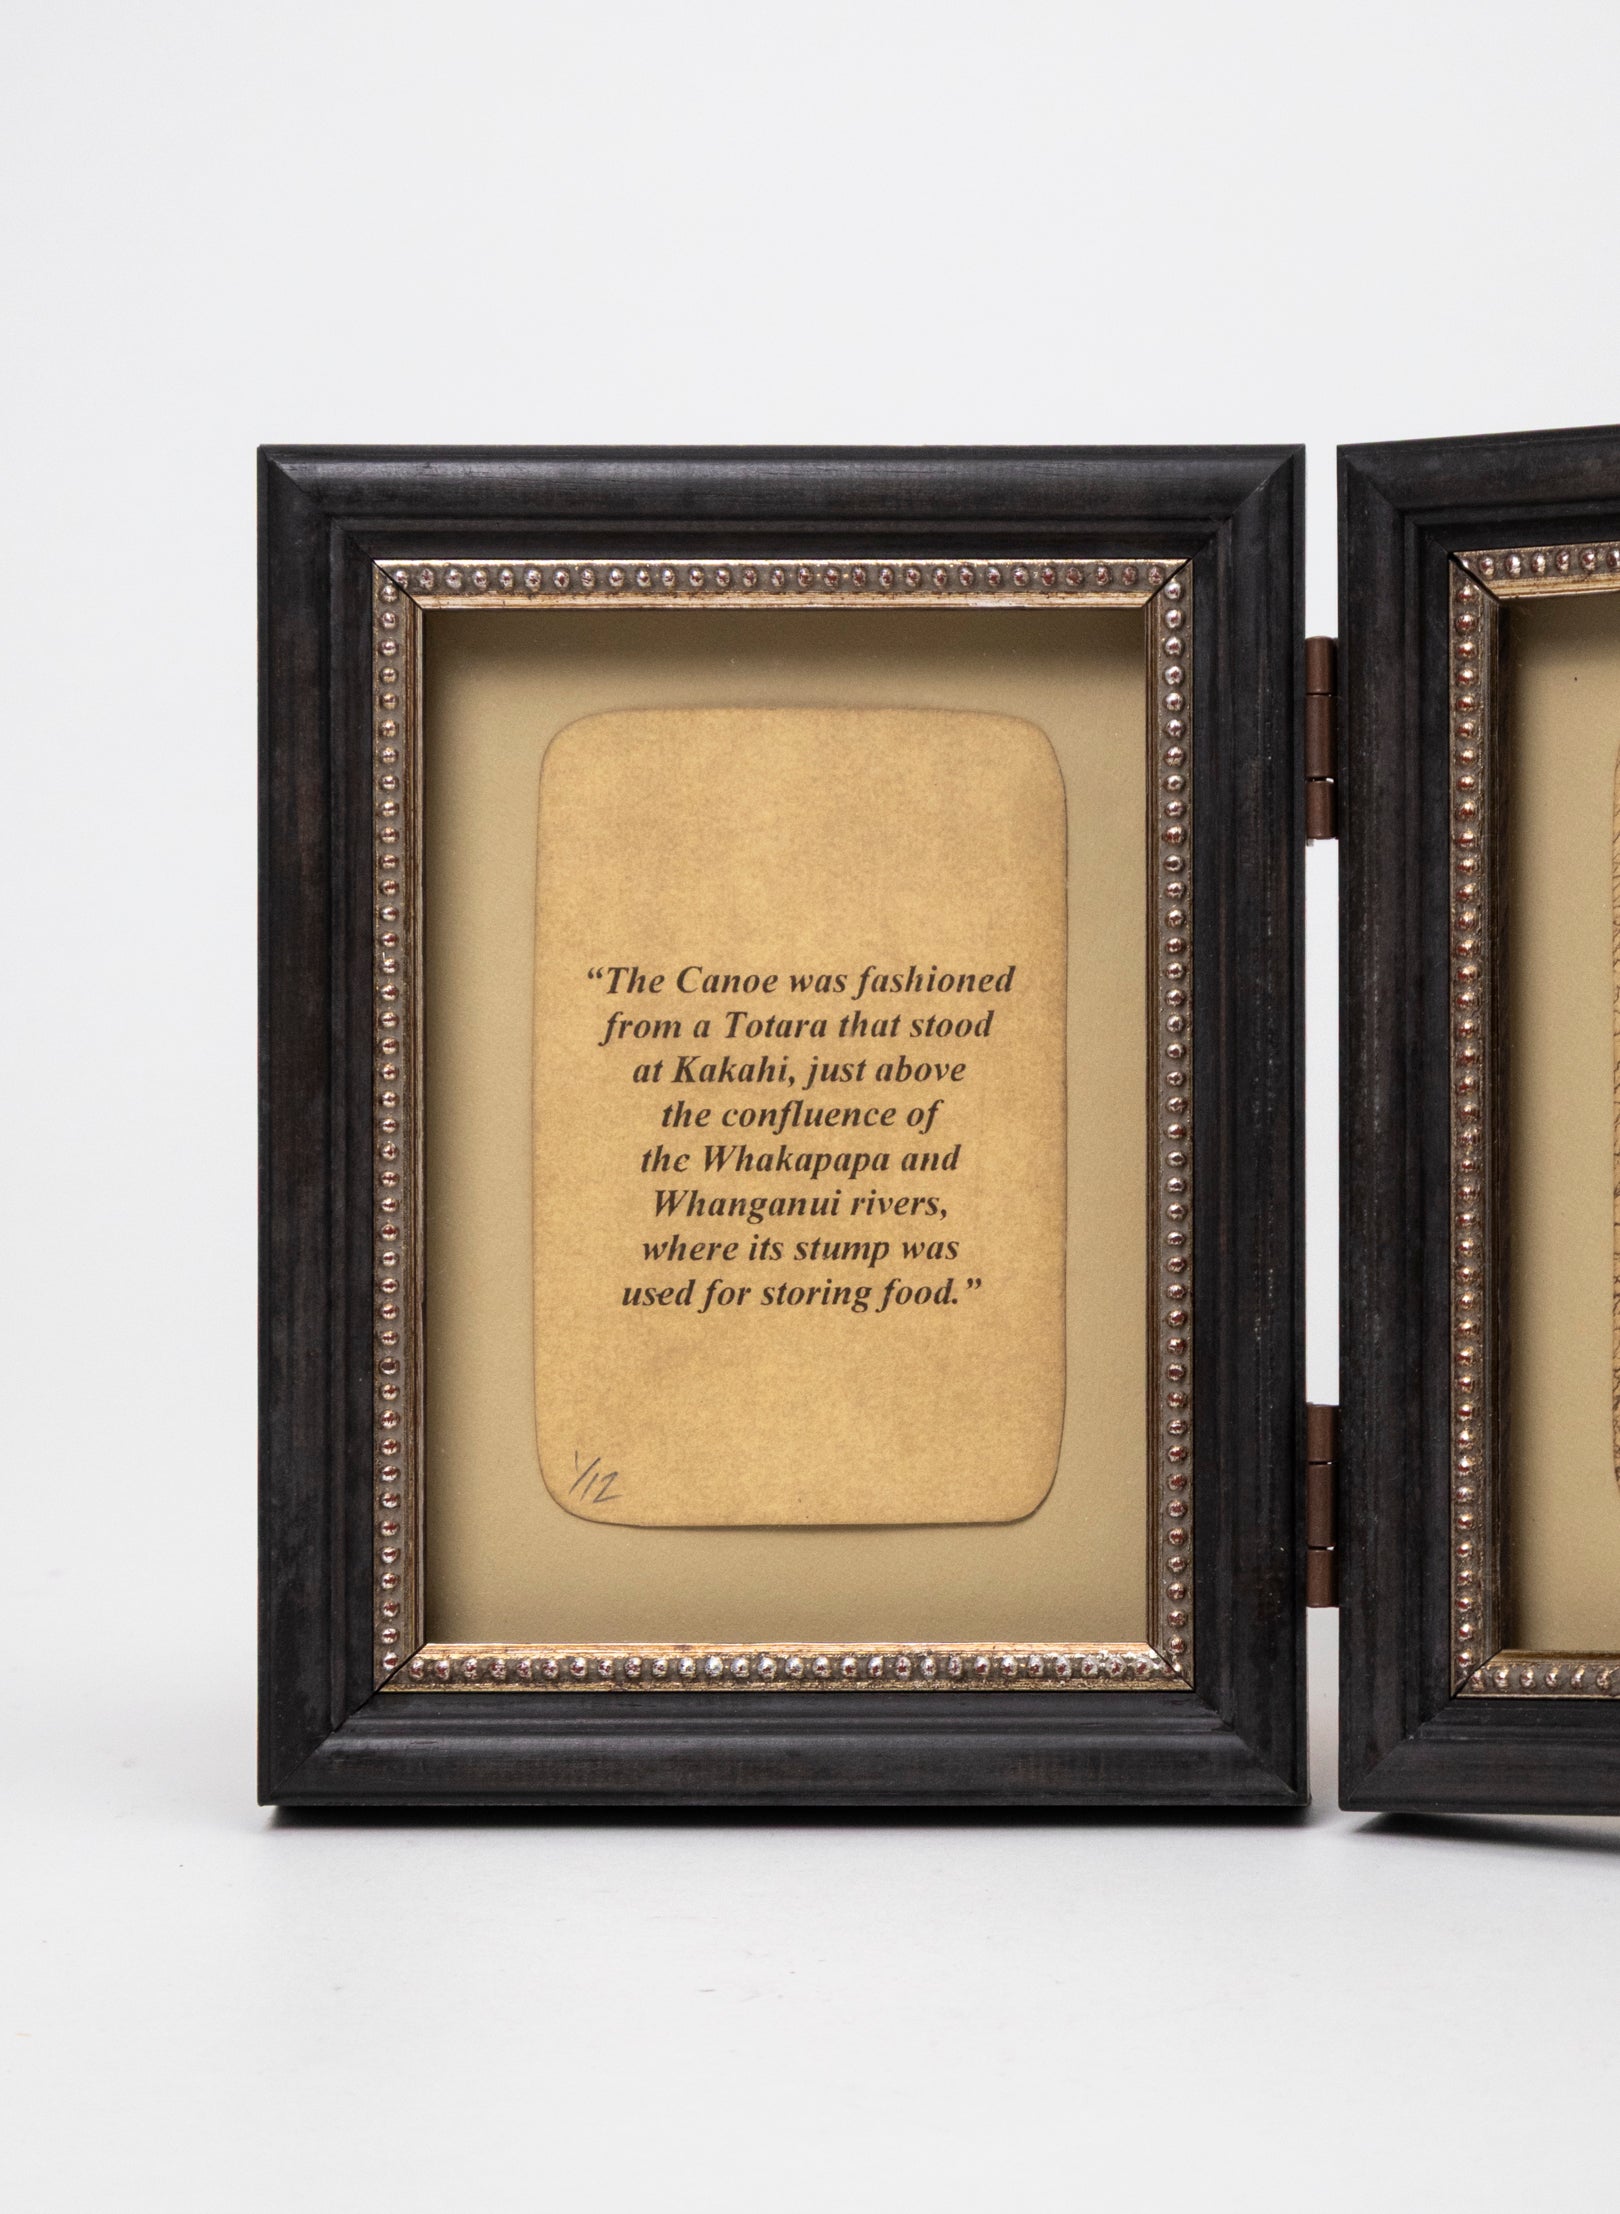 “The Canoe was fashioned
from a Totara that stood
at Kakahi, just above
the confluence of
the Whakapapa and
Whanganui rivers,
where its stump was
used for storing food.”
1/12